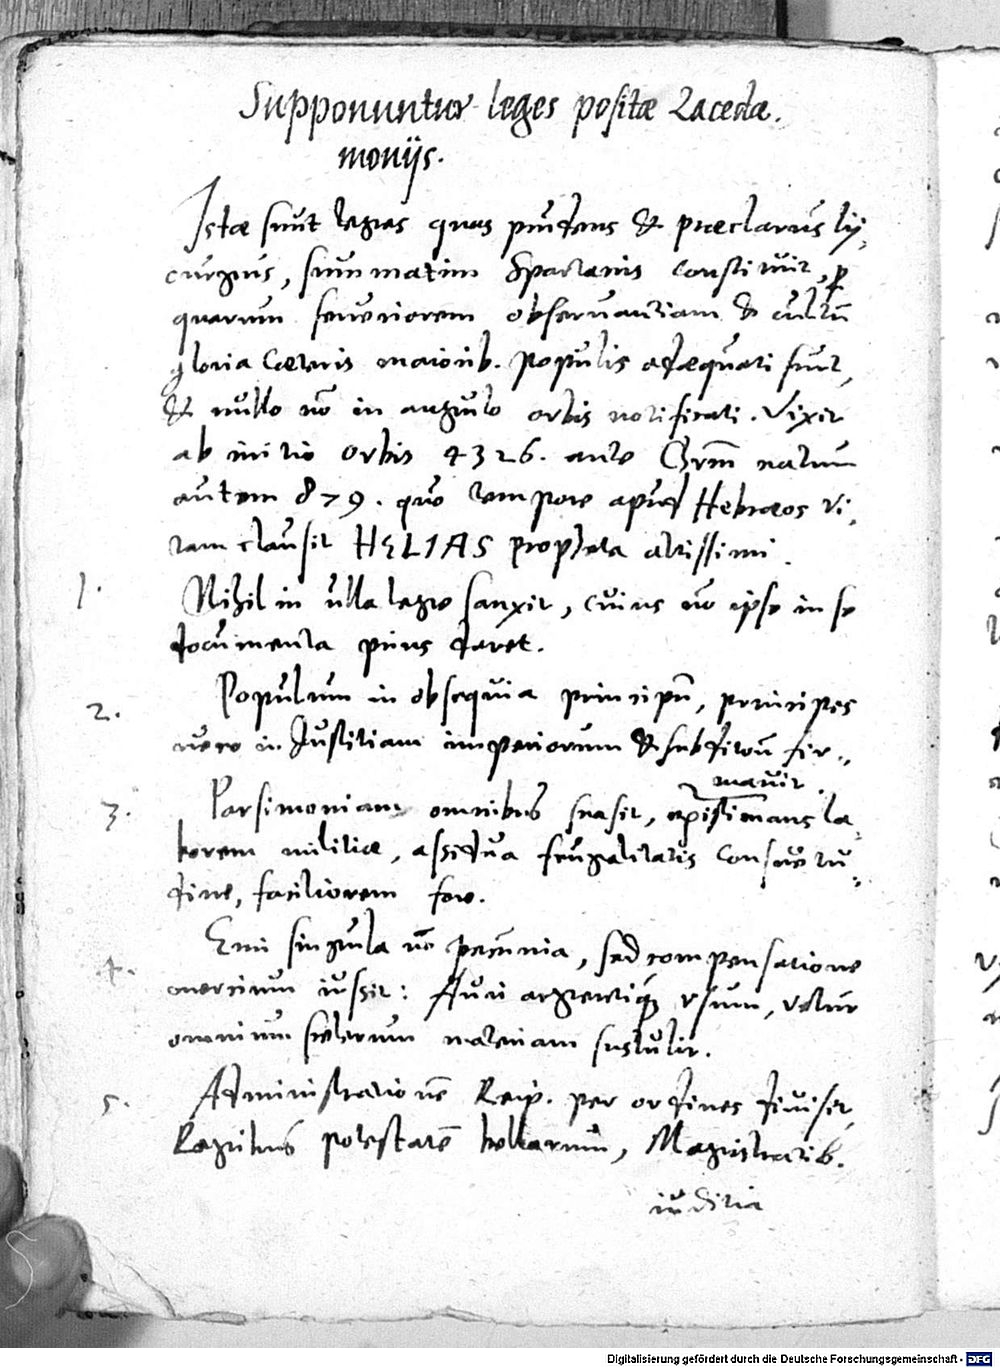 Supponuntur leges positæ Lacedæ.
monijs.
Istæ sunt leges quas prudens & præclarus Ly,
curgus, summatim Spartanis constituit, p
quarum seueriorem obseruantiam & cultū
gloria Cæteris maiorib. populis adæquati sunt,
& nullo nō in angulo orbis notificati. Vixit
ab initio Orbis 4326. ante Chrm̄ natum
autem 879. quo tempore apud Hebræos vi,
tam clausit HELIAS propheta altissimi.
1. Nihil in ulla lege sanxit, cuius nō ipse in se
documenta prius daret.
2. Populum in obsequia principū, principes
uero in Justitiam imperiorum & subditorū fir,,
mauit.
3. Parsimoniam omnibus suasit, existimans la,
borem militiæ, assidua frugalitatis consuetu,,
dine, faciliorem fore.
4. Emi singula nō pecunia, sed compensatione
mercium iussit: Auri argentiq; usum, velut
omnium scelerum materiam sustulit.
5. Administrationē Reip. per ordines diuisit,
Regibus potestatē bellorum, Magistratib.
iuditia
Digitalisierung gefördert durch die Deutsche Forschungsgemeinschaft - DFG